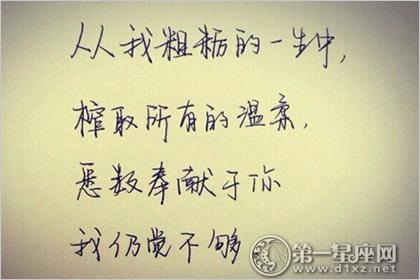 从我粗粝的一生中,
榨取所有的温柔,
悉数奉献于你
我仍觉不够
第一星座网
www.d1xz.net